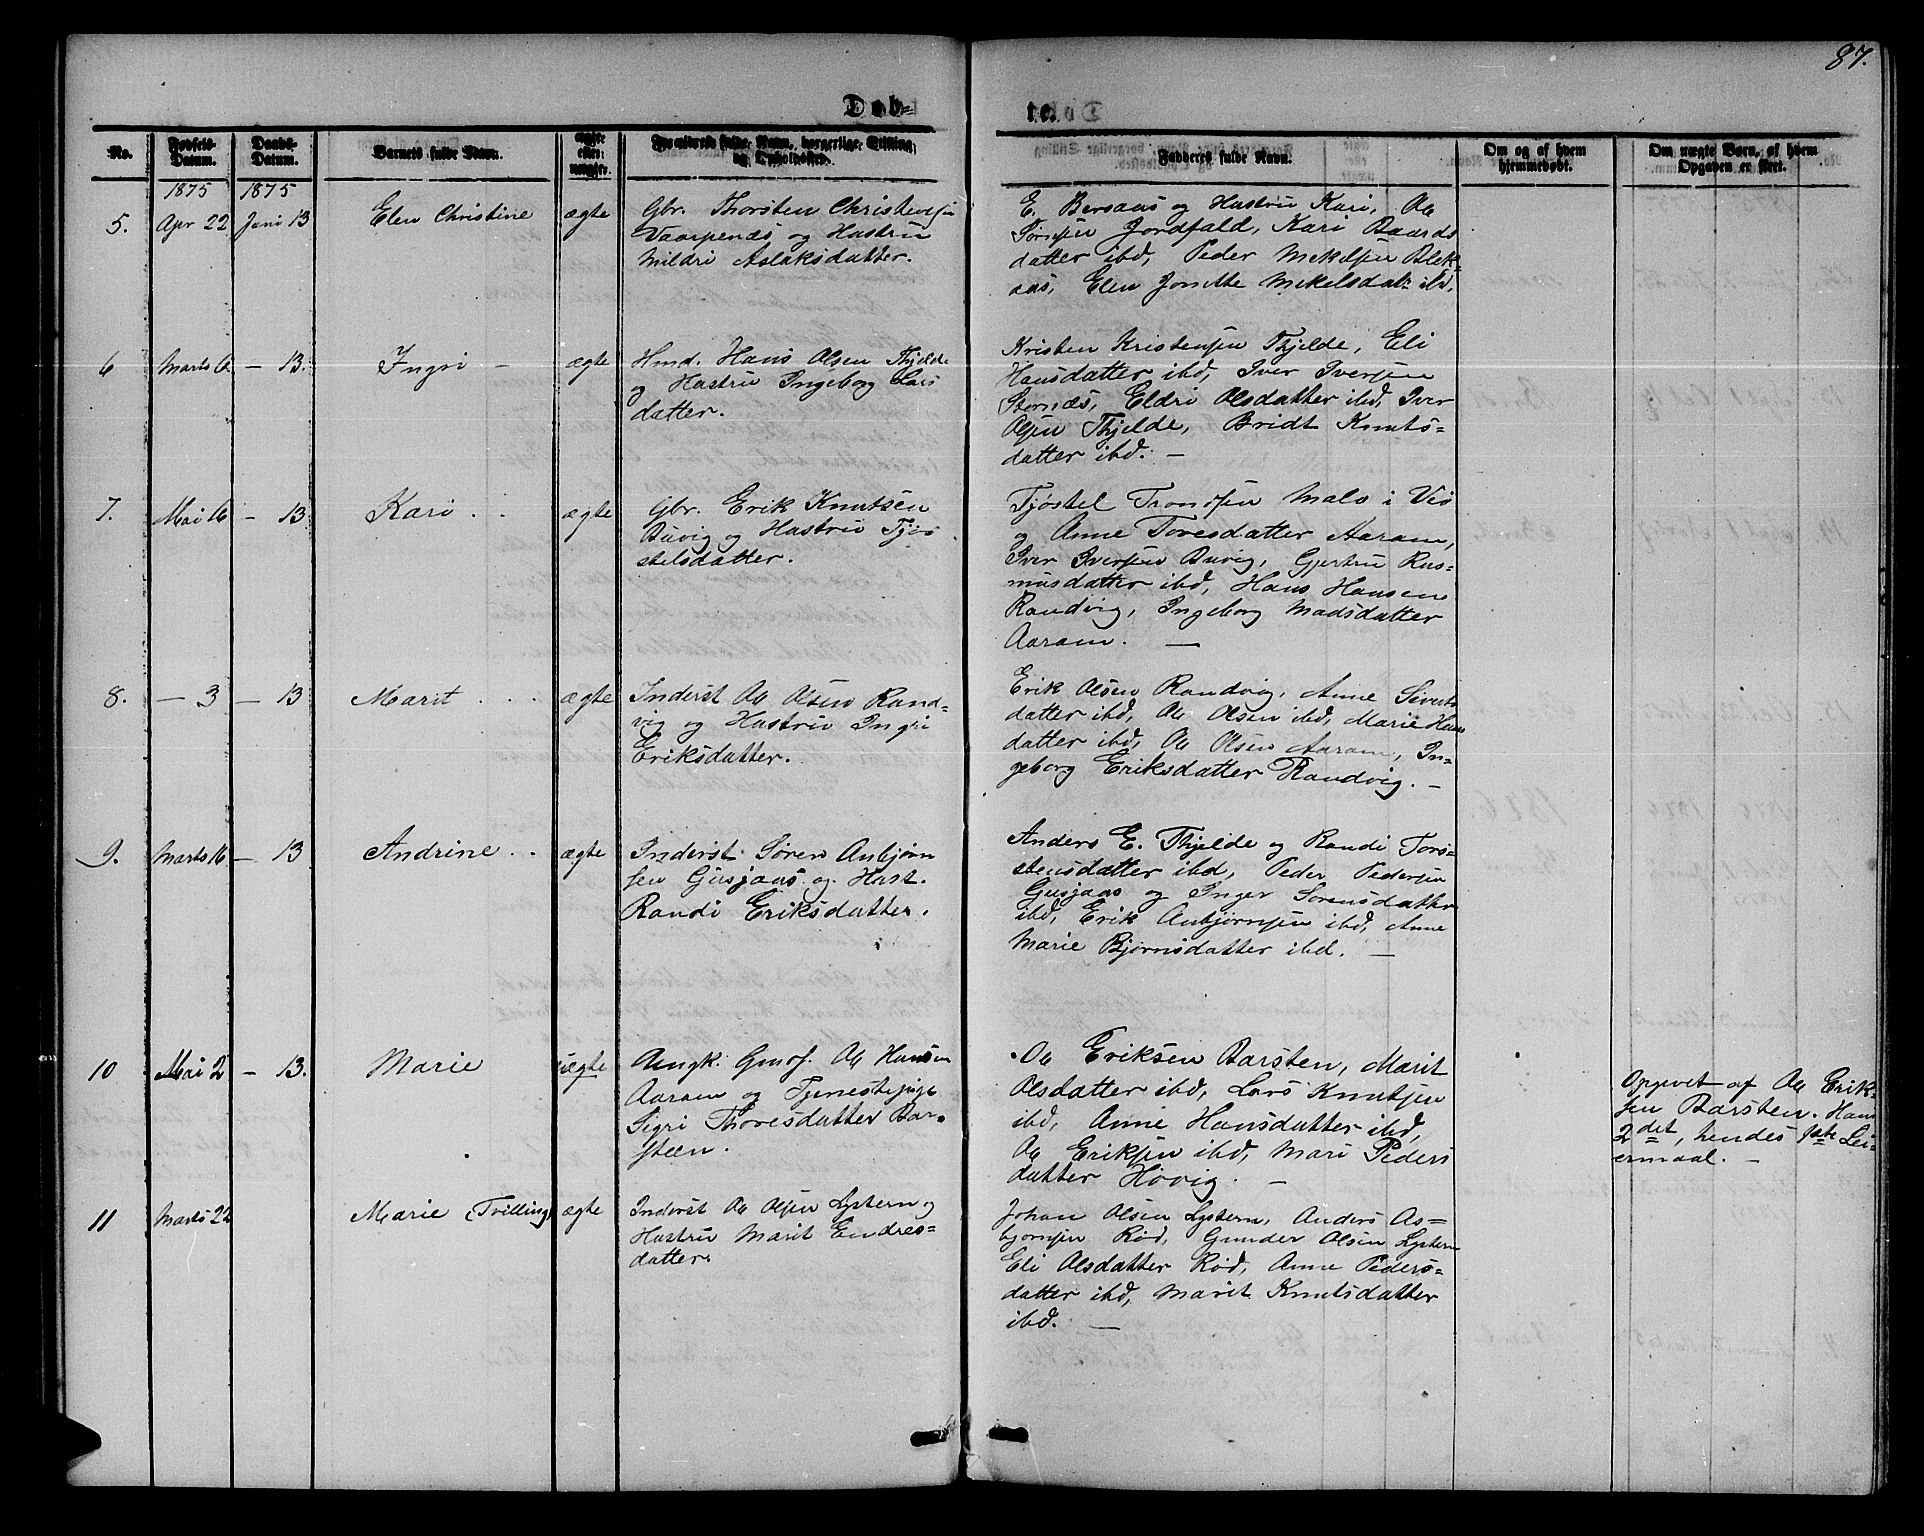 87.
Døb-
te.
No.
Fødsels-
Datum.
Daabs-
Datum.
Barnets fulde Navn.
ægte
eller
uægte.
Forældres fulde Navn, borgerlige Stilling
og Opholdssted.
Faddernes fulde Navn.
Om og af hvem
hjemmedøbt.
Om uægte Børn, af hvem
Opgaven er skeet.
1875 1875
5. Apr 22 Juni 13 Elen Christine ægte
Gbr. Thorsten Christensen
og Hustru
Mildri Aslaksdatter.
E. Bersaas og Hustru Kari, Ole
Jordfald, Kari Baards
datter ibd, Peder Mekelsen Blek-
aas, Elen Jonette Mekelsdat: ibd.
6 Marts 6 — 13. Ingri — ægte
Hmd. Hans Olsen Thjelde
og Hustru Ingeborg Lars
datter.
Kristen Kristensen Thjelde, Eli
Hansdatter ibd, Iver Iversen
Stornæs, Eldri Olsdatter ibd, Iver
Olsen Thjelde, Bridt Knuts=
datter ibd. —
7. Mai 16 — 13 Kari . . ægte
Gbr. Erik Knutsen
Buvig og Hustru Tjøs
stelsdatter.
Tjøstel Tronsen Malo i Veø
og Anne Toresdatter Aaram,
Iver Iversen Buvig, Gjertru Ras=
musdatter ibd, Hans Hansen
Randvig, Ingeborg Madsdatter
Aaram. —
8. — 3 — 13 Marit . . . ægte
Inderst Ole Olsen Rand=
vig og Hustru Ingri
Eriksdatter.
Erik Olsen Randvig, Anne Siverts
datter ibd, Ole Olsen ibd, Marie Hans
datter ibd, Ole Olsen Aaram, In=
geborg Eriksdatter Randvig. —
9. Marts 16 — 13 Andrine . . ægte
Inderst Søren Anbjørn
sen Gusjaas og Hust.
Randi Eriksdatter.
Anders E. Thjelde og Randi Tors=
stensdatter ibd, Peder Pedersen
Gusjaas og Inger Sørensdatter
ibd, Erik Anbjørnsen ibd, Anne
Marie Bjørnsdatter ibd. —
10 Mai 2 — 13. Marie uægte
Ungk. Gmdf. Ole Hansen
Aaram og Tjenestepige
Sigri Thoresdatter Bar=
steen.
Ole Eriksen Barsten, Marit
Olsdatter ibd, Lars Knutsen
ibd, Anne Hansdatter ibd,
Ole Eriksen ibd, Mari Peders
datter Høvig. —
Opgivet af Ole Erik=
sen Barsten. Hans
2det, hendes 1ste Lei=
ermaal. —
11 Marts 22 Marie (Tvilling) ægte
Inderst Ole Olsen Lystern og
Hustru Marit Endres=
datter.
Johan Olsen Lystern, Anders As=
bjørnsen Rød, Gunder Olsen Lystern
Eli Olsdatter Rød, Anne Peders=
datter ibd, Marit Knutsdatter
ibd. —